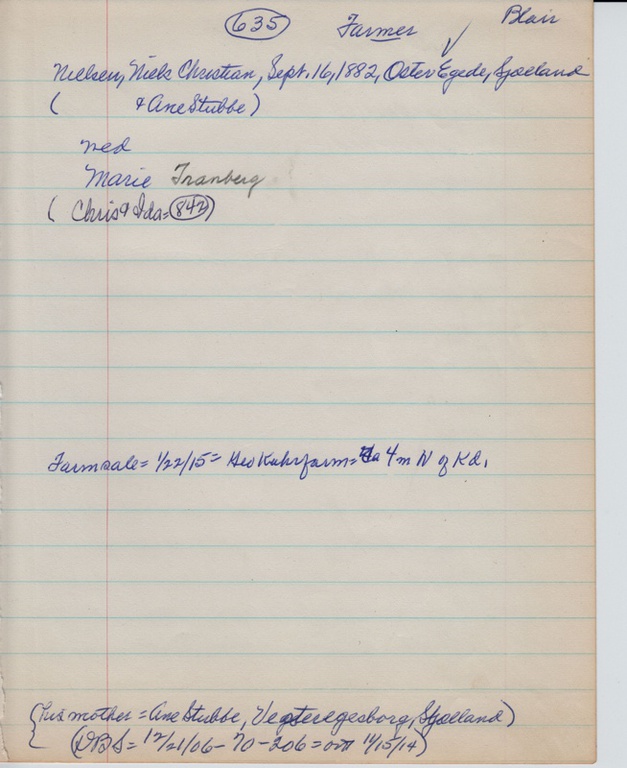 635 Farmer Blair
Nielsen, Niels Christian, Sept. 16, 1882, Oster Egede, Sjaelland
( & Ane Stubbe)
med
Marie Tranberg
( Chris & Ida = 842)
Farm sale = 1/22/15 = Geo Kuhr farm = 4 m N of Kd.
(his mother = Ane Stubbe, Vesteregesborg, Sjaelland)
(DBS = 12/21/06 - 70 - 206 = 11/15/14)